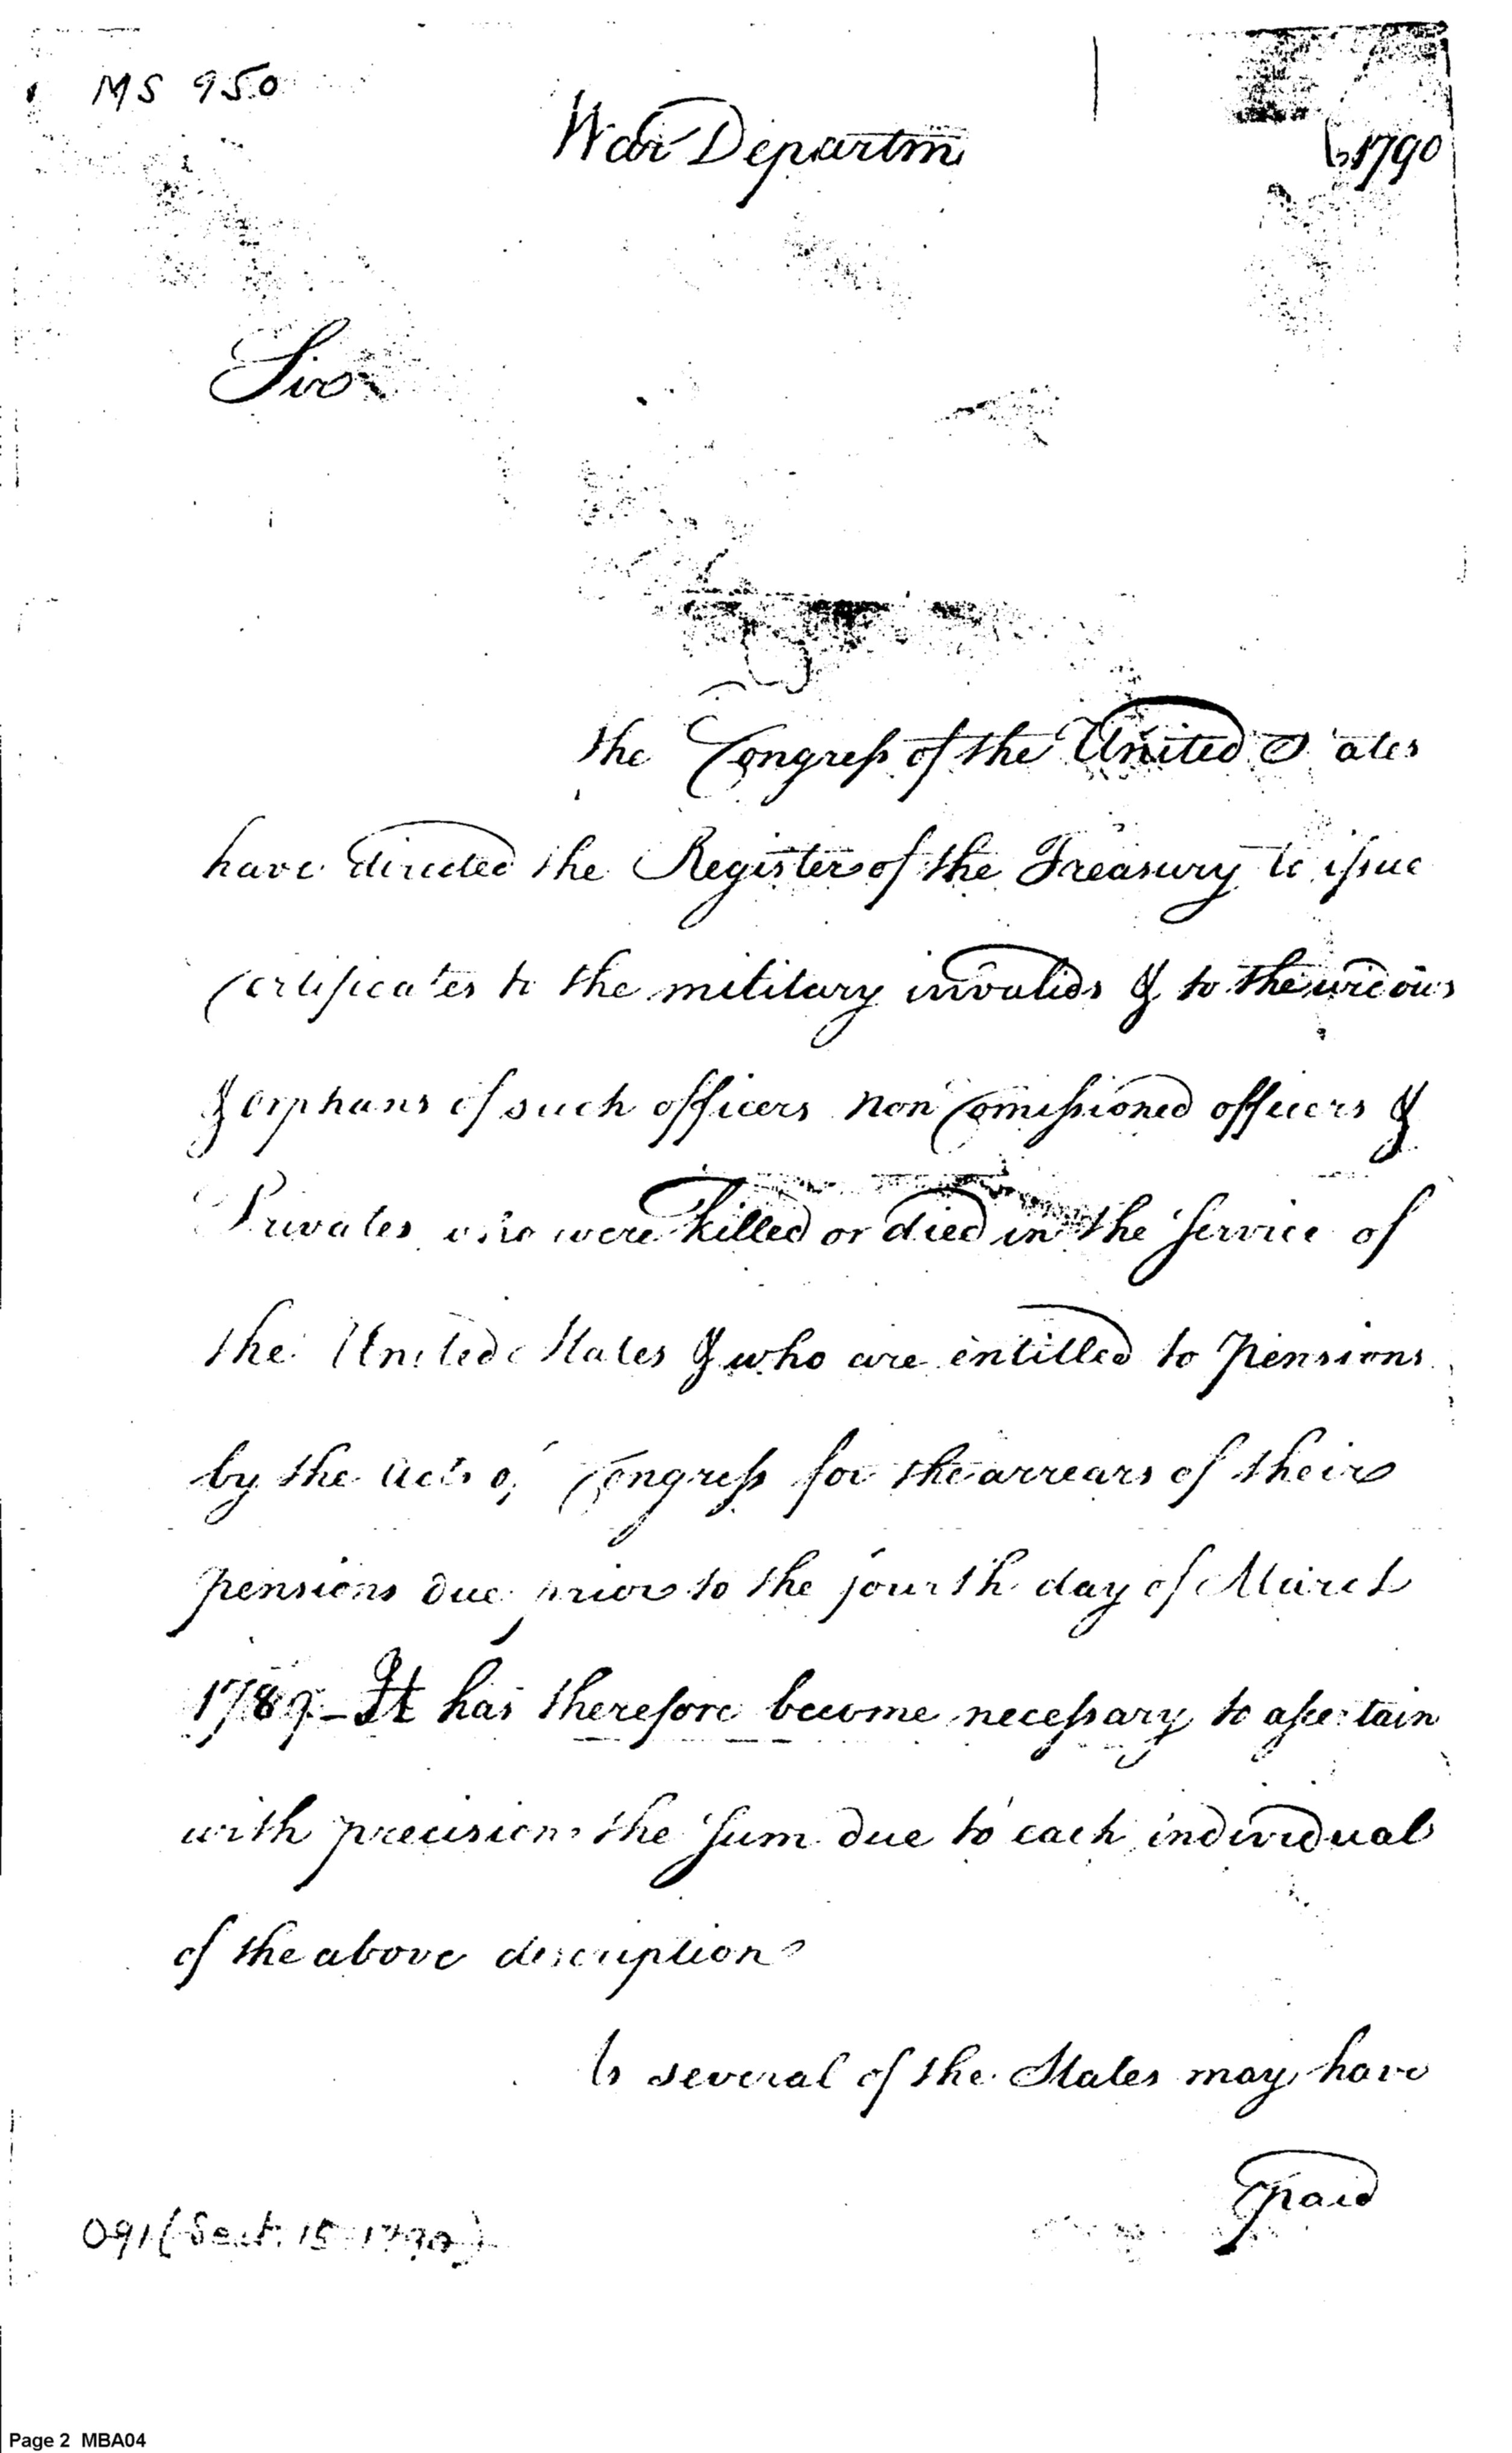 MS 950
War Departm
1790
Sir
the Congress of the United States
have directed the Register of the Treasury to issue
Certificates to the military invalids & to the widows
& orphans of such officers non Comissioned officers &
Privates who were killed or died in the Service of
the United States & who are entitled to pensions
by the acts of Congress for the arrears of their
pensions due prior to the fourth day of March
1789 - It has therefore become necessary to assertain
with precision the Sum due to each individual
of the above description
As several of the States may have
paid
091 (Sept. 15 1790)
Page 2 MBA04